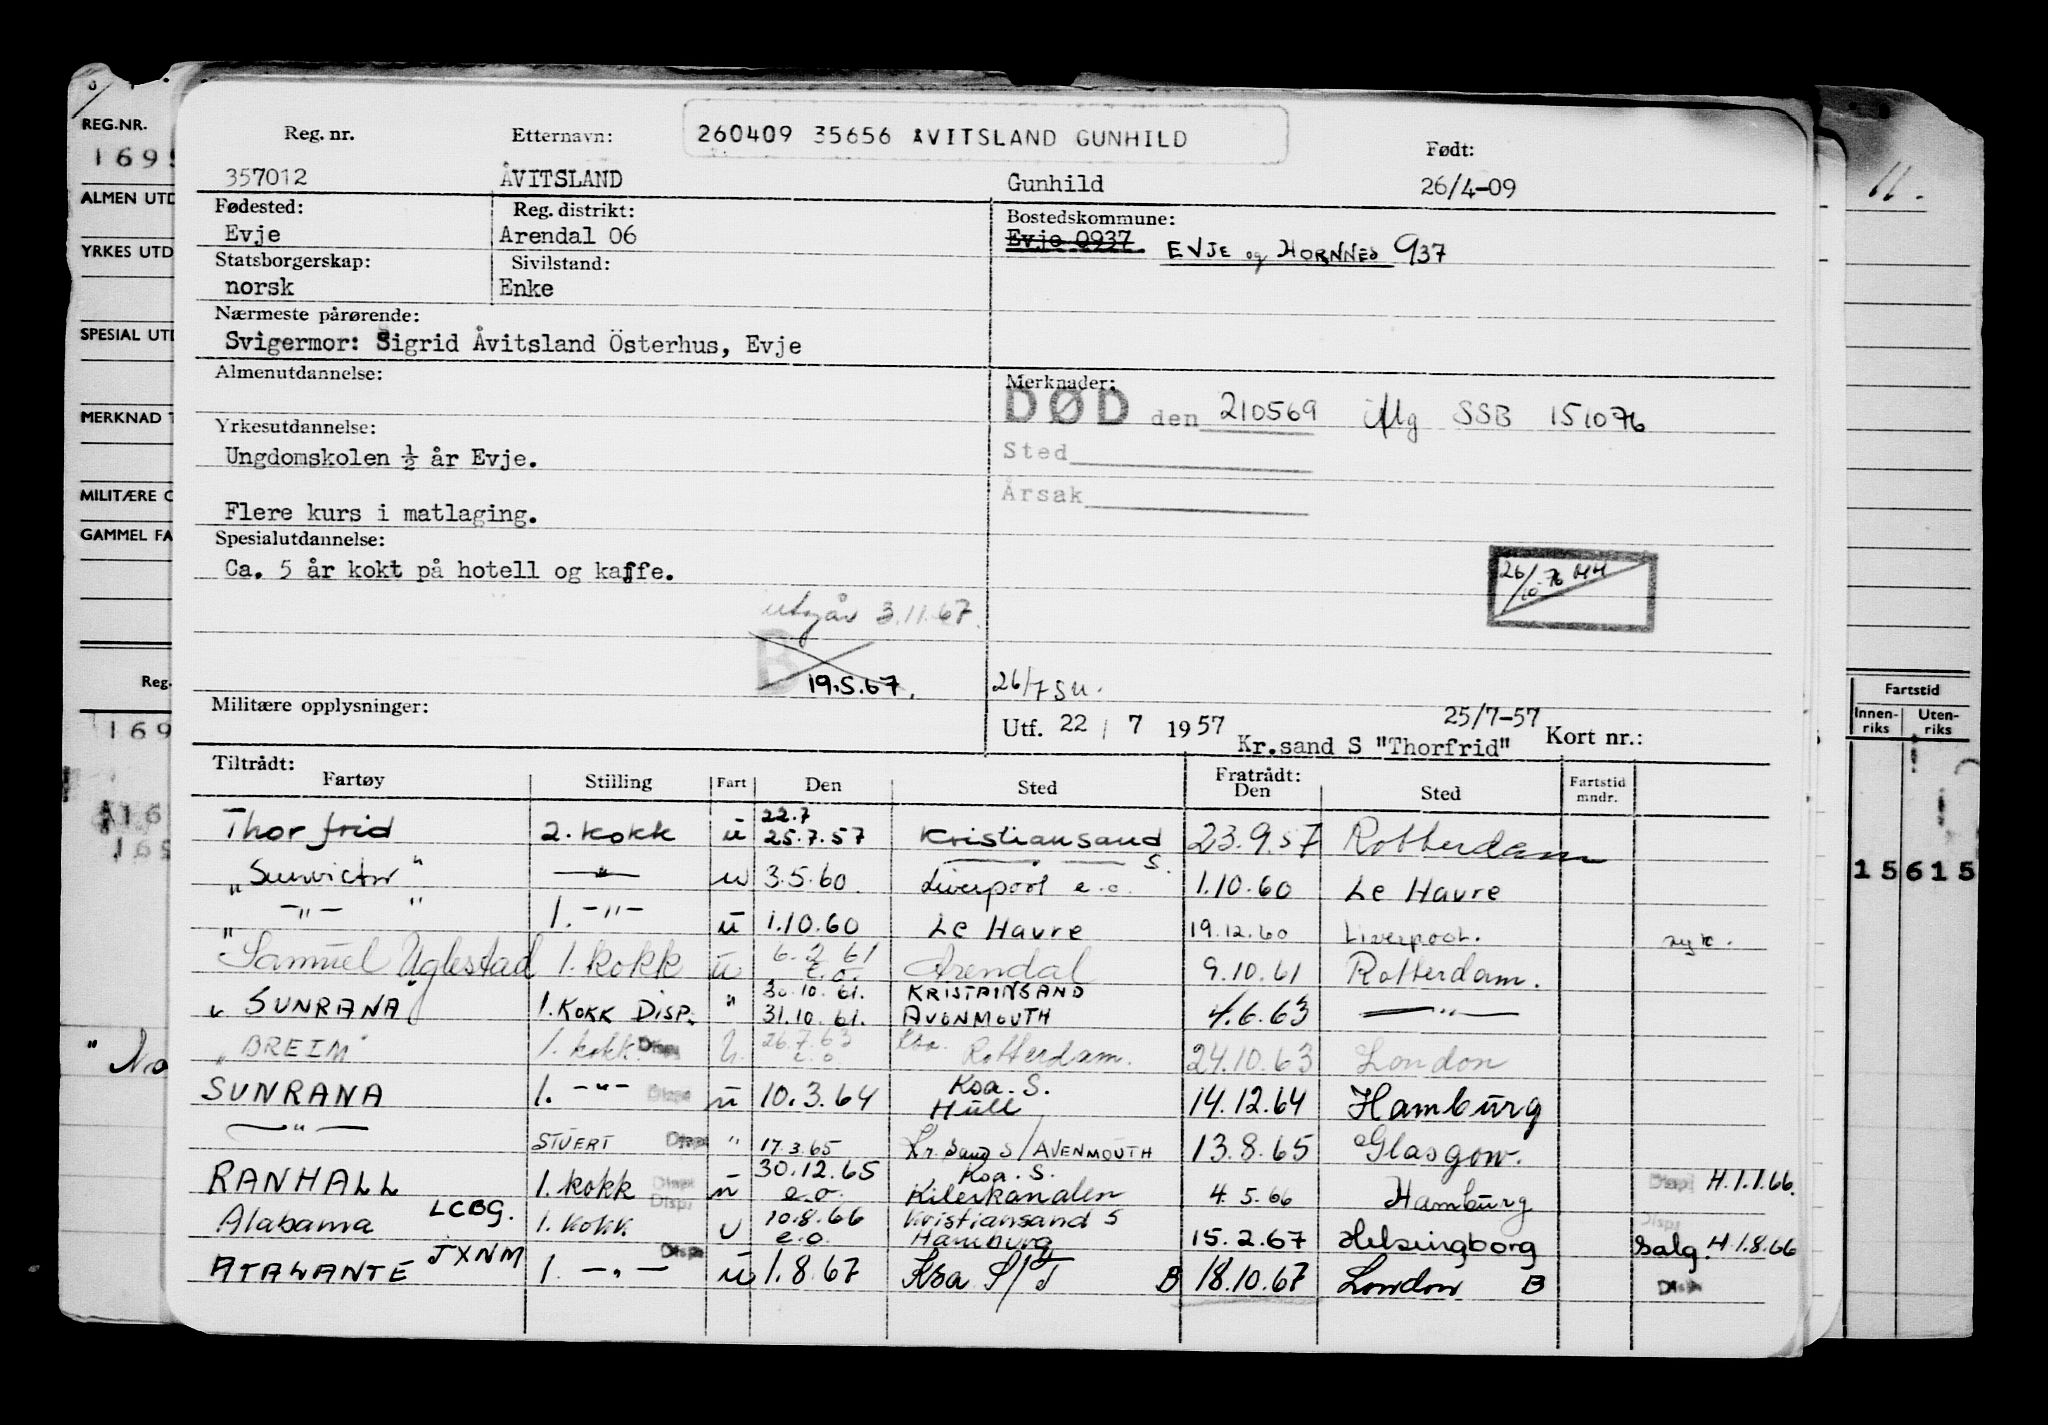 Reg. nr. Etternavn: 260409 35656 ÅVITSLAND GUNHILD Født:
357012 ÅVITSLAND Gunhild 26/4-09
Fødested: Reg. distrikt: Bostedskommune:
Evje Arendal 06 Evje 0937. EVJE og HORNNES 937
Statsborgerskap: Sivilstand:
norsk Enke
Nærmeste pårørende:
Svigermor: Sigrid Åvitsland Österhus, Evje
Almenutdannelse: Merknader:
DØD den 210569 iflg SSB 151076
Yrkesutdannelse:
Ungdomskolen ½ år Evje. Sted
Årsak
Flere kurs i matlaging.
Spesialutdannelse:
Ca. 5 år kokt på hotell og kaffe. 26/10-76 HH
utgår 3.11.67.
B 19.5.67. 26/7 SU.
Militære opplysninger: Utf. 22 / 7 1957 25/7-57
Kr.sand S "Thorfrid" Kort nr.:
Tiltrådt: Fratrådt:
Fartøy Stilling Fart Den Sted Den Sted Fartstid mndr.
Thorfrid 2. kokk u 22.7 25.7.57 Kristiansand S. 23.9.57 Rotterdam
"Sunvictor" -"- u 3.5.60. Liverpool e.o. 1.10.60 Le Havre
"-"-" 1. -"- u 1.10.60 Le Havre 19.12.60 Liverpool. syk.
"Samuel Uglestad" 1. kokk u 6.2 61 e.o. Arendal 9.10.61 Rotterdam.
" SUNRANA 1. KOKK DISP. " 30.10.61. KRISTAINSAND
31.10.61. AVONMOUTH 4.6.63 -"-
"BREIM" 1. kokk. Disp u. 26.7.63 e.o. Ksa. Rotterdam. 24.10.63 London
SUNRANA 1. -"- Disp u 10.3.64 Ksa. S. Hull 14.12.64 Hamburg
-"- STUERT Disp " 17.3.65 Kr.sand S/AVENMOUTH 13.8.65 Glasgow.
RANHALL 1. kokk Disp u 30.12.65 e.o. Ksa. S. Kilerkanalen 4.5.66 Hamburg Disp H.1.1.66.
Alabama LCBG. 1. kokk. Disp u 10.8.66 e.o. Kristiansand S Hamburg 15.2.67 Helsingborg Disp Salg. H.1.8.66
ATALANTE JXNM 1. -"- Disp u 1.8.67 Ksa S/T B 18.10.67 London B Disp
REG.NR.
1695
ALMEN UTD
YRKES UTD
SPESIAL UTD
MERKNAD T
MILITÆRE O
GAMMEL FA
Reg.
169
A16
169
" No
11.
Fartstid
Innenriks Utenriks
15615